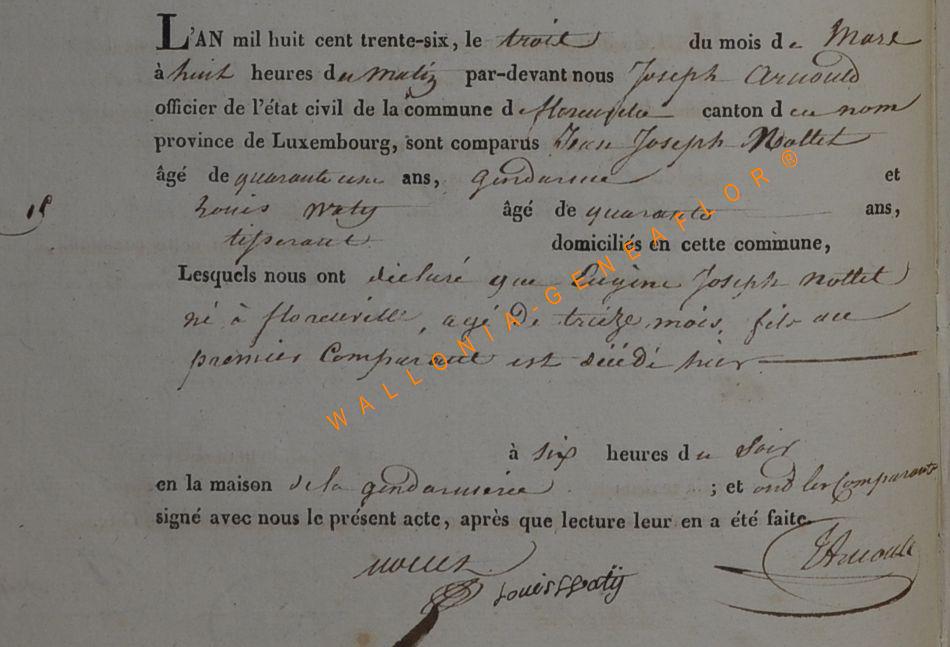 L'AN mil huit cent trente-six, le trois du mois de Mars
à huit heures du Matin par-devant nous Joseph Arnould
officier de l'état civil de la commune de florenville canton du nom
province de Luxembourg, sont comparus Jean Joseph Nollet
âgé de quarante une ans, gendarme et
18
Louis Waty âgé de quarante ans,
tisserant domiciliés en cette commune,
Lesquels nous ont déclaré que Eugène Joseph Nollet
né à florenville, agé de trieze mois, fils au
premier Comparant est décédé hier
à six heures du Soir
en la maison de la gendarmerie ; et ont les Comparants
signé avec nous le présent acte, après que lecture leur en a été faite.
Nollet
JArnould
Louis Watÿ
WALLONIA-GENEAFLOR®